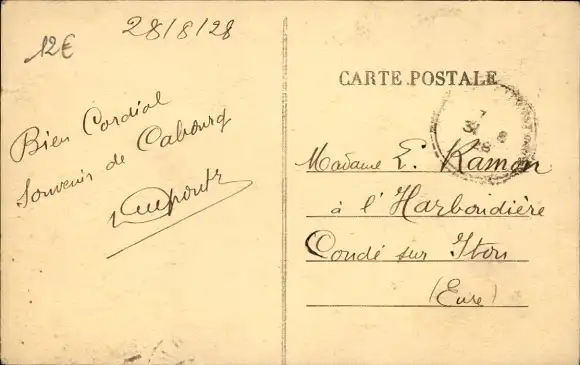 12€
28/8/28
Bien Cordial
Souvenir de Cabourg
CARTE POSTALE
Madame E. Ramon
à l'Harboudière
Condé sur Iton
(Eure)